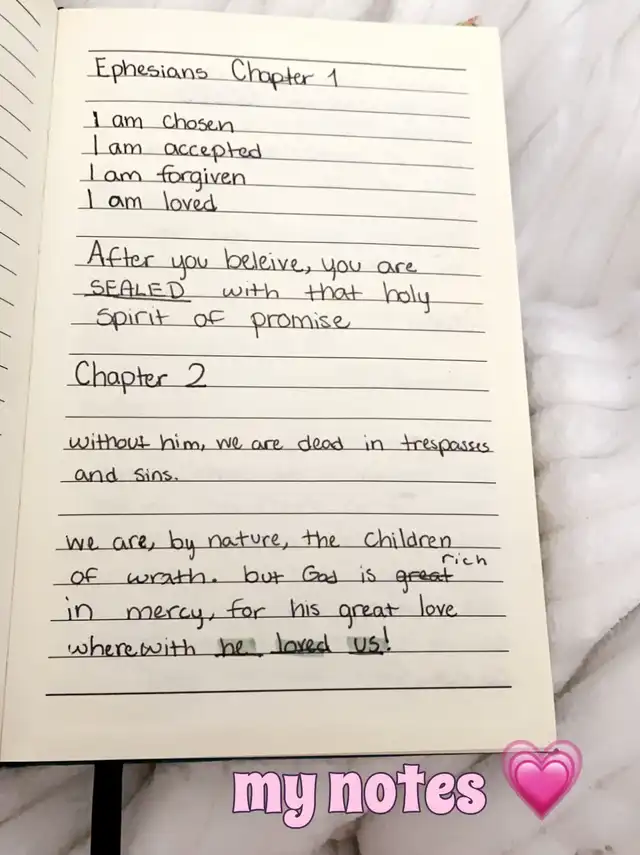 Ephesians Chapter 1
I am chosen
I am accepted
I am forgiven
I am loved
After you beleive, you are
SEALED with that holy
spirit of promise
Chapter 2
without him, we are dead in trespasses
and sins.
we are, by nature, the children
of wrath. but God is great rich
in mercy, for his great love
wherewith he loved us!
my notes